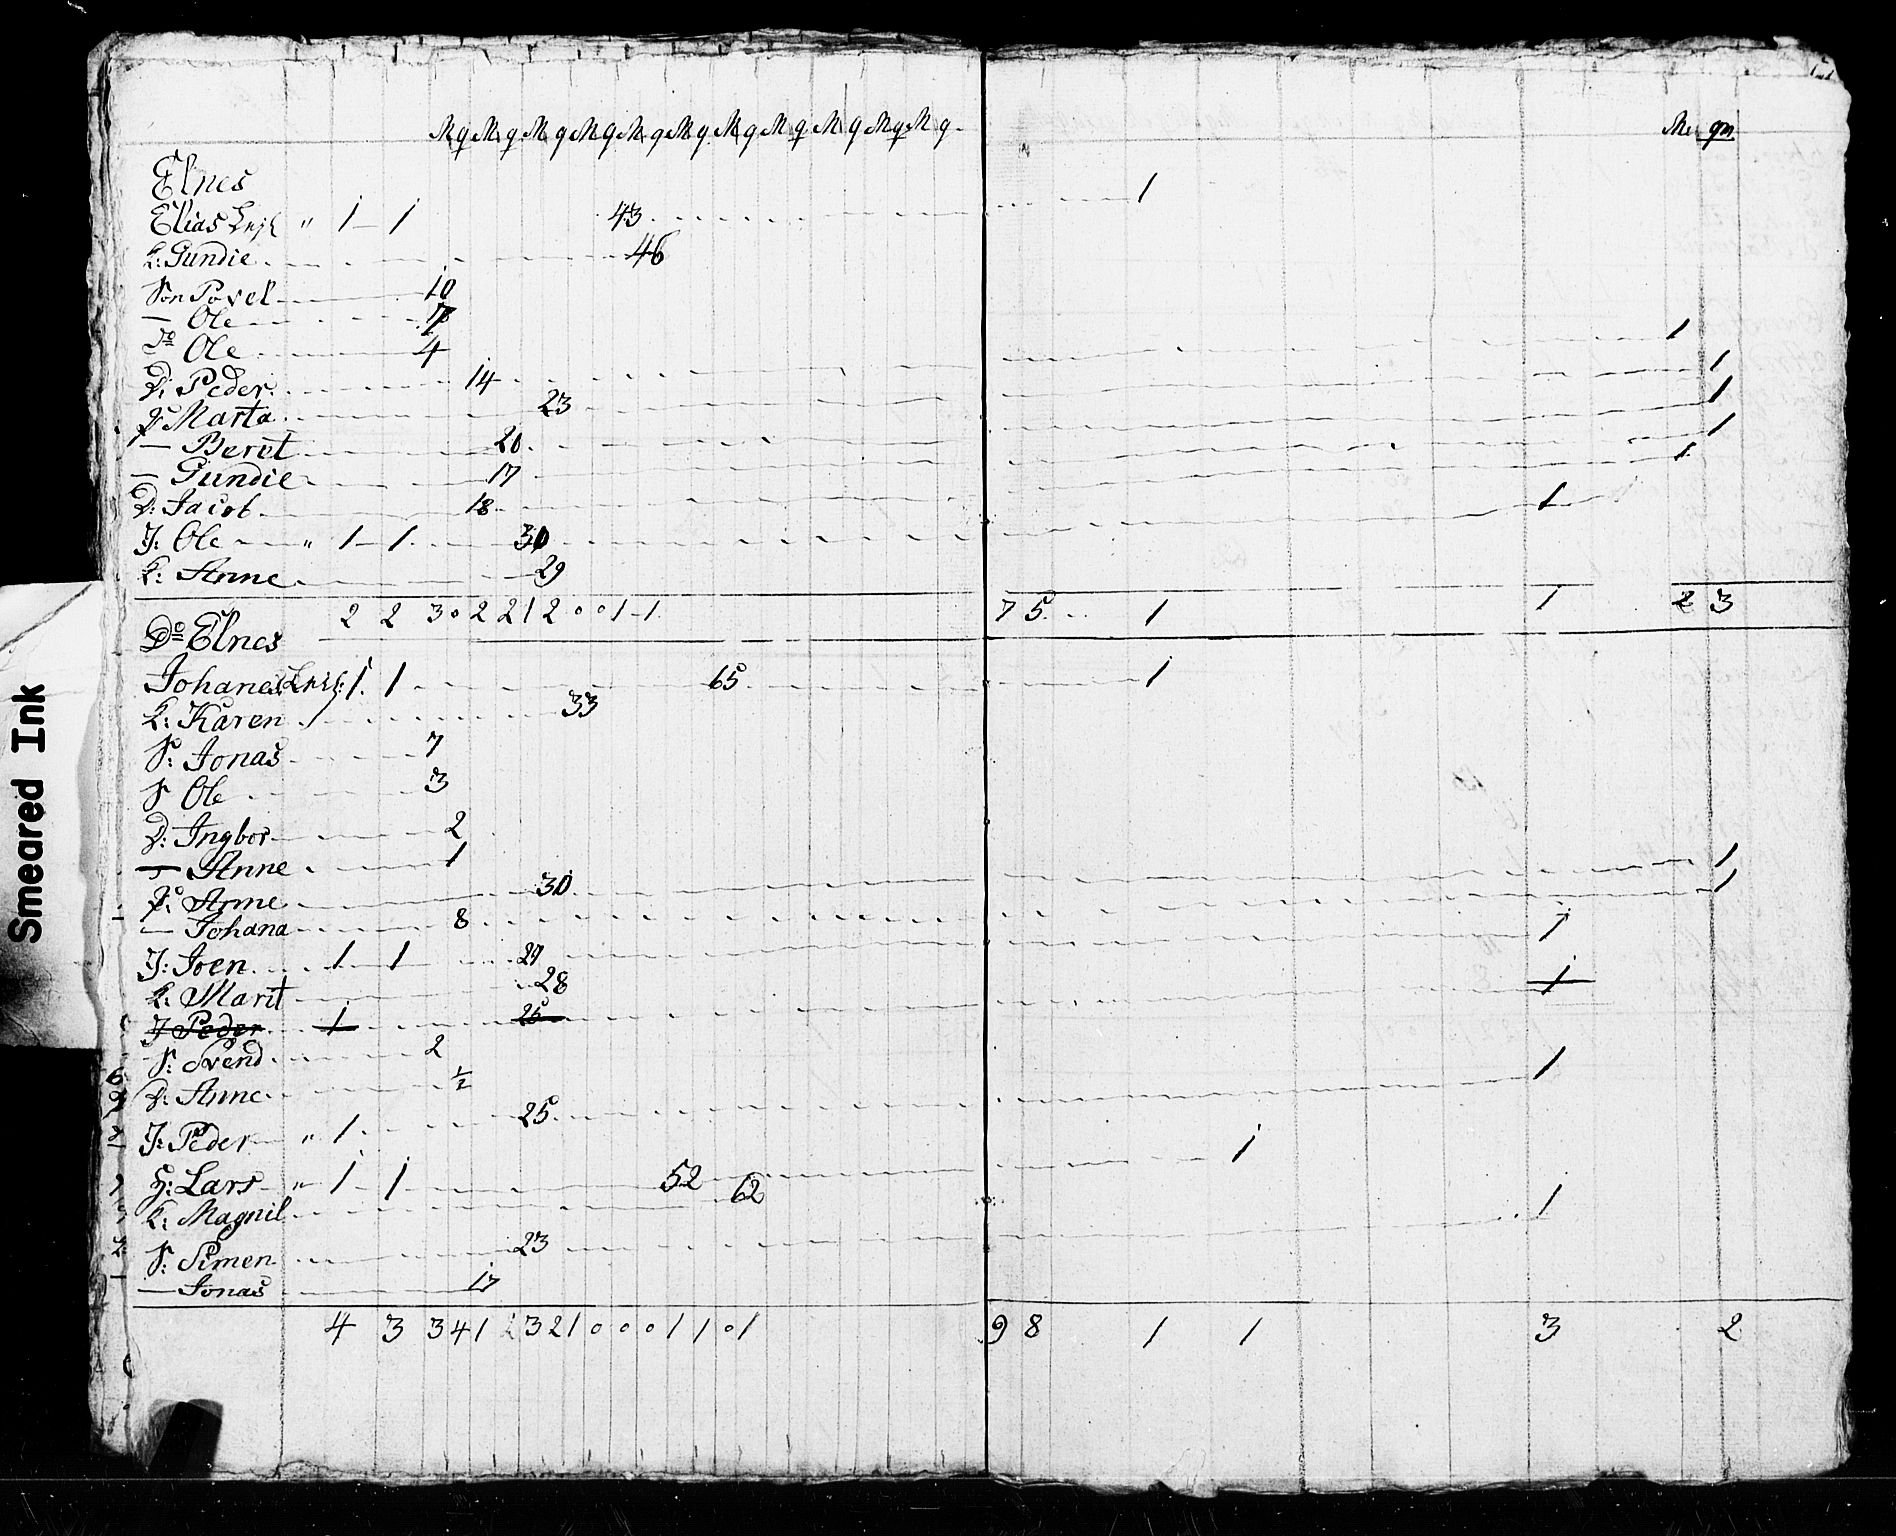 M q M q M q M q M q M q M q M q M q M q M q
M qn
Elnes
Elias " 1 1 43 1
K: Gundie 46
Søn Povel 10
— Ole
Do Ole 4
D: Peder 14 1
P: Marta 23 1
— Beret 20 1
— Gundie 17 1
D: Jacob 18 1
J: Ole " 1 1 30 1
K: Anne 29
2 2 3 0 2 2 1 2 0 0 1 1 7 5 1 1 2 3
Do Elnes
Johanes 1 1 65 1
K: Karen 33
S: Jonas 7
S Ole 3
D: Ingbor 2
— Anne 1
P: Anne 30 1
— Johana 8 1
J: Joen 1 1 29 1
K: Marit 28
J Peder 1 25 1
S: Svend 2
D: Anne ½
J: Peder " 1 25 1
H: Lars " 1 1 52 1
K: Magnil 62
S: Simen 23 1
— Jonas 17
4 3 3 4 1 2 3 2 1 0 0 0 1 1 0 1 9 8 1 1 3 2
Smeared Ink